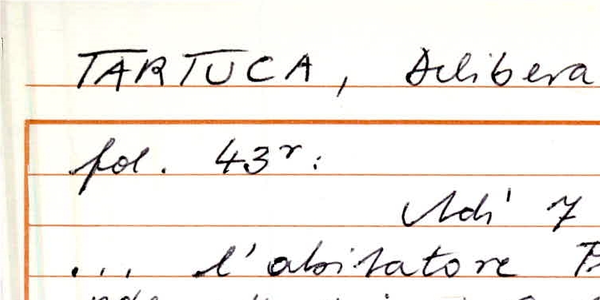 TARTUCA, Delibera
fol. 43r:
Adi' 7
... l'abitatore